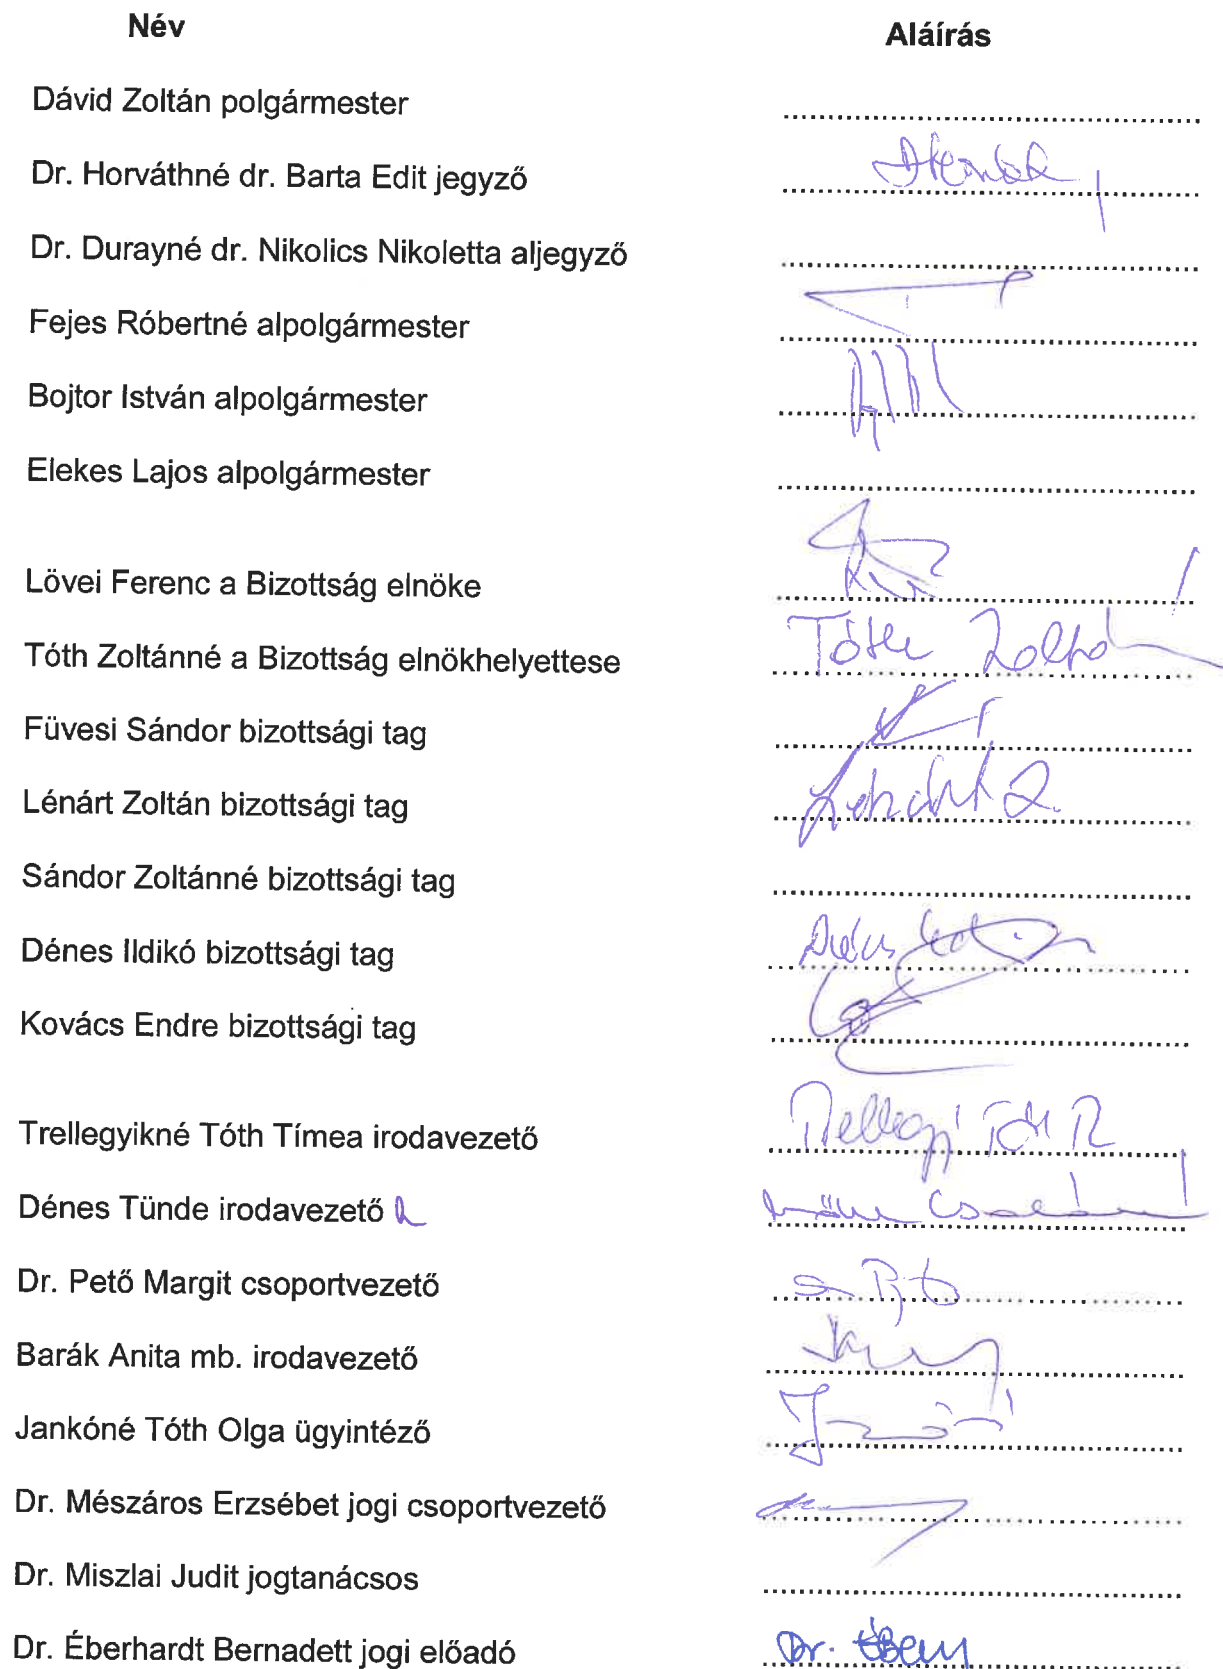 Név Aláírás
Dávid Zoltán polgármester
Dr. Horváthné dr. Barta Edit jegyző
Dr. Durayné dr. Nikolics Nikoletta aljegyző
Fejes Róbertné alpolgármester
Bojtor István alpolgármester
Elekes Lajos alpolgármester
Lövei Ferenc a Bizottság elnöke
Tóth Zoltánné a Bizottság elnökhelyettese Tóth
Füvesi Sándor bizottsági tag
Lénárt Zoltán bizottsági tag Lénárt Z.
Sándor Zoltánné bizottsági tag
Dénes Ildikó bizottsági tag
Kovács Endre bizottsági tag
Trellegyikné Tóth Tímea irodavezető
Dénes Tünde irodavezető
Dr. Pető Margit csoportvezető
Barák Anita mb. irodavezető
Jankóné Tóth Olga ügyintéző
Dr. Mészáros Erzsébet jogi csoportvezető
Dr. Miszlai Judit jogtanácsos
Dr. Éberhardt Bernadett jogi előadó Dr.